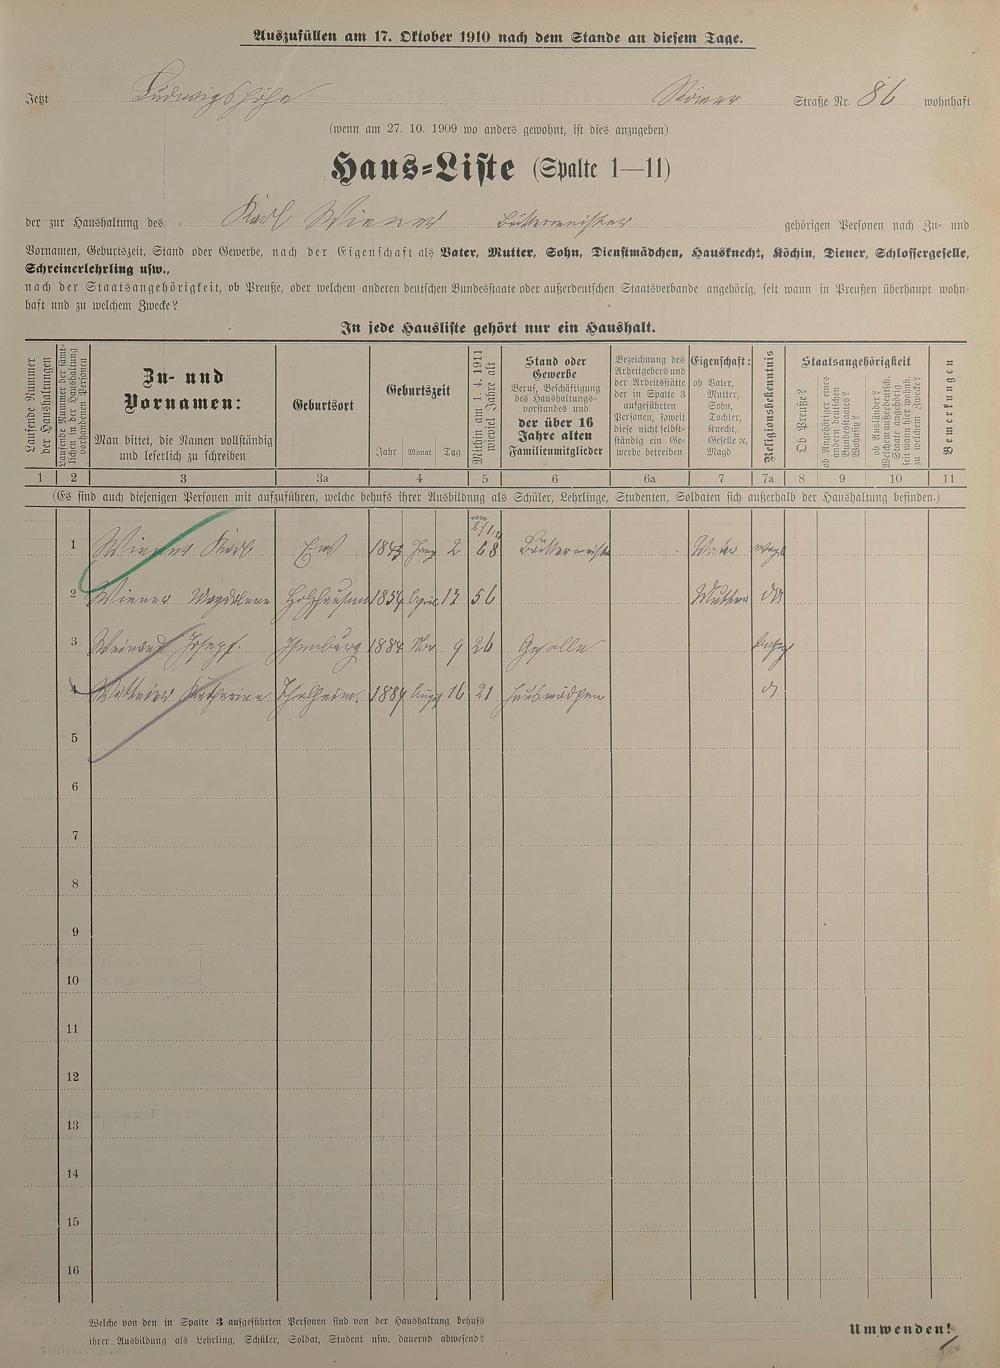 Auszufüllen am 17. Oktober 1910 nach dem Stande an diesem Tage.
Jetzt Ludwigshöhe Römer Straße Nr. 86 wohnhaft
(wenn am 27. 10. 1909 wo anders gewohnt, ist dies anzugeben)
Haus-Liste (Spalte 1—11)
der zur Haushaltung des Karl Wiener Bäckermeister gehörigen Personen nach Zu- und
Vornamen, Geburtszeit, Stand oder Gewerbe, nach der Eigenschaft als Vater, Mutter, Sohn, Dienstmädchen, Hausknecht, Köchin, Diener, Schlossergeselle,
Schreinerlehrling usw.,
nach der Staatsangehörigkeit, ob Preuße, oder welchem anderen deutschen Bundesstaate oder außerdeutschen Staatsverbande angehörig, seit wann in Preußen überhaupt wohn-
haft und zu welchem Zwecke?
In jede Hausliste gehört nur ein Haushalt.
Laufende Nummer
der Haushaltungen
Laufende Nummer der sämt-
lichen in der Haushaltung
vorhandenen Personen
Zu- und
Vornamen:
Man bittet, die Namen vollständig
und leserlich zu schreiben
Geburtsort
Geburtszeit
Jahr Monat Tag
Mithin am 1. 4. 1911
wieviel Jahre alt
Stand oder
Gewerbe
Beruf, Beschäftigung
des Haushaltungs-
vorstandes und
der über 16
Jahre alten
Familienmitglieder
Bezeichnung des
Arbeitgebers und
der Arbeitsstätte
der in Spalte 3
aufgeführten
Personen, soweit
diese nicht selbst-
ständig ein Ge-
werbe betreiben
Eigenschaft:
ob Vater,
Mutter,
Sohn,
Tochter,
Knecht,
Geselle ec,
Magd
Religionsbekenntnis
Staatsangehörigkeit
Ob Preuße?
ob Angehöriger eines
andern deutschen
Bundesstaates?
Wohnitz?
ob Ausländer?
Welchem außerdeutsch.
Staate angehörig
seit wann hier wohnh.
zu welchem Zwecke?
Bemerkungen
1 2 3 3a 4 5 6 6a 7 7a 8 9 10 11
(Es sind auch diejenigen Personen mit aufzuführen, welche behufs ihrer Ausbildung als Schüler, Lehrlinge, Studenten, Soldaten sich außerhalb der Haushaltung befinden.)
1 Wiener Karl Ems 1843 2 68 Bäckermeister Vater
2 Wiener Magdalena Holzhausen 1854 April 12 56 Mutter
3 Josepf. Isenburg 1884 Nov 9 26 Geselle
4 Katharina 1889 Aug 16 21 Hausmädchen
5
6
7
8
9
10
11
12
13
14
15
16
Welche von den in Spalte 3 aufgeführten Personen sind von der Haushaltung behufs
ihrer Ausbildung als Lehrling, Schüler, Soldat, Student usw. dauernd abwesend?
Umwenden!